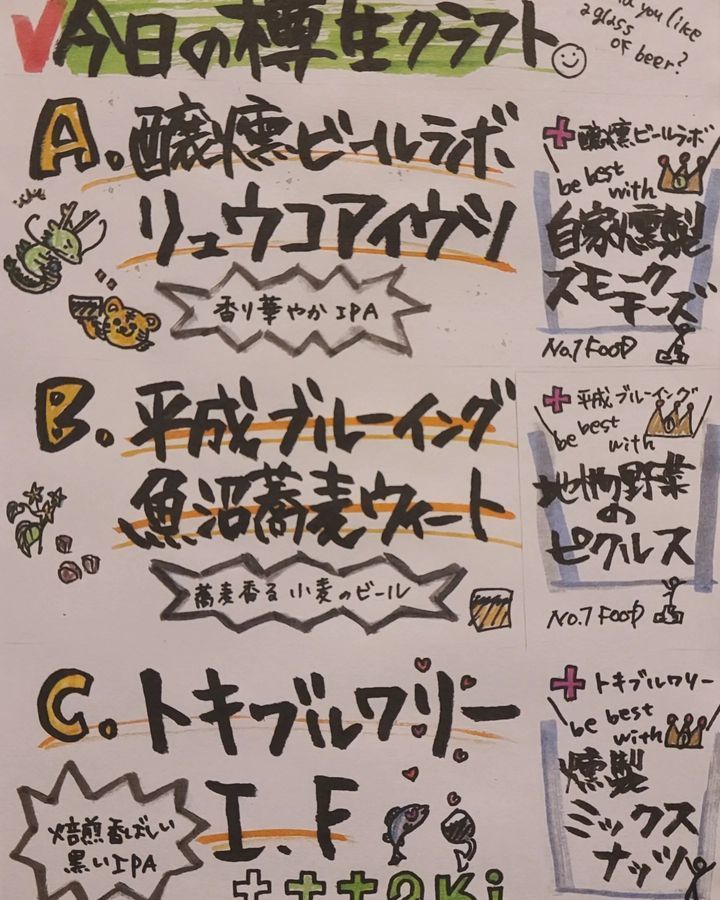 今日の樽生クラフト
you like
a glass
of beer?
A. 醸燻ビールラボ
リュウコアイヴィ
香り華やかIPA
+醸燻ビールラボ
be best
with
自家燻製
スモーク
チーズ
No.1 FOOD
B. 平成ブルーイング
魚沼蕎麦ウィート
蕎麦香る小麦のビール
+平成ブルーイング
be best
with
地物野菜
の
ピクルス
No.1 FOOD
C. トキブルワリー
I.F
焙煎香ばしい
黒いIPA
+トキブルワリー
be best
with
燻製
ミックス
ナッツ